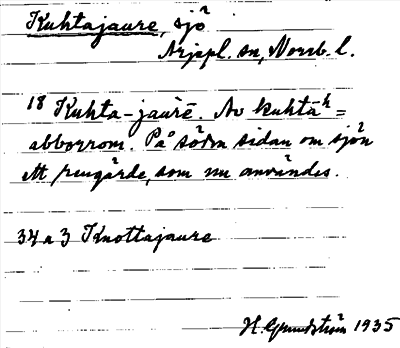 Kuhtajaure, sjö
Arjepl. sn, Norrb. l.
18 Kuhta-jaùrē. Av kuhtāʰ =
abborrom. På södra sidan om sjön
ett rengärde, som nu användes.
34 a 3 Knottajaure
H. Grundström 1935